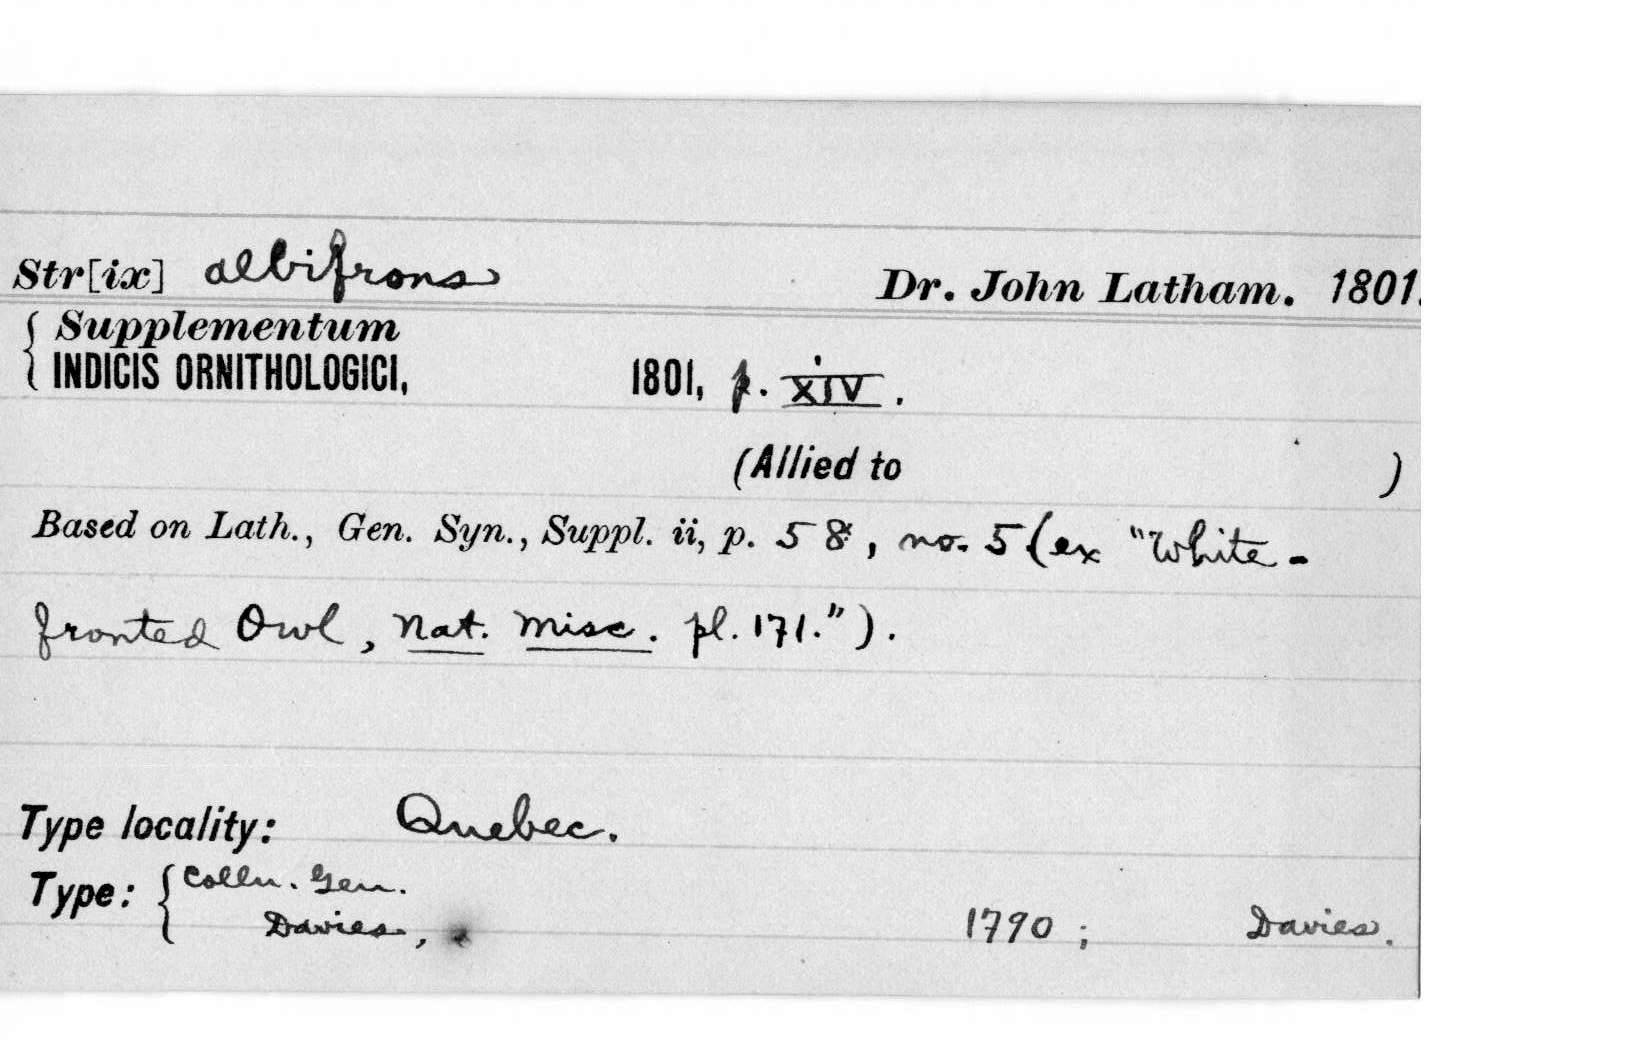 Str[ix] albifrons Dr. John Latham. 1801.
{ Supplementum
INDICIS ORNITHOLOGICI, 1801, p. XIV.
(Allied to )
Based on Lath., Gen. Syn., Suppl. ii, p. 58, no. 5 (ex "White-
fronted Owl, Nat. Misc. pl. 171.").
Type locality: Quebec.
Type: { Colln. Gen.
Davies, 1790 ; Davies.